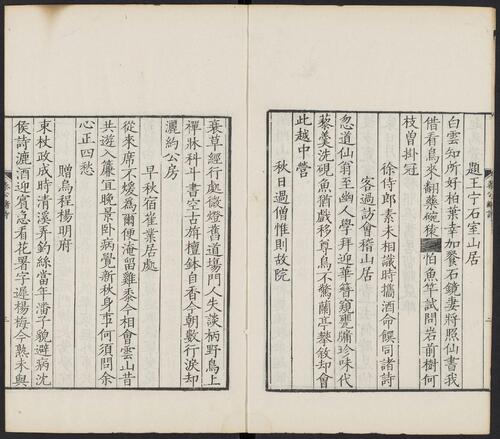 題王宁石室山居
白雲知所好柏葉幸加餐石鏡妻將照仙書我
借看鳥來翻藥碗猿怕魚竿試問岩前樹何
枝曾掛冠
徐侍郎素未相識時攜酒命饌司諸詩
客過訪會稽山居
忽道仙翁至幽人學拜迎華簪窺甕牖珍味代
藜羹洗硯魚猶戲移尊鳥不驚蘭亭攀敘却會
此越中營
秋日過僧惟則故院
衰草經行處微燈舊道場門人失談柄野鳥上
禪牀科斗書空古旃檀鉢自香今朝數行淚却
灑約公房
早秋宿崔業居處
從來席不煖為爾便淹留雞黍今相會雲山昔
共遊入簾宜晚景卧病覺新秋身事何須問余
心正四愁
贈烏程楊明府
東杖政成時清溪弄釣絲當年潘子貌避病沈
侯詩漉酒迎賓急看花署字遲楊梅今熟未與